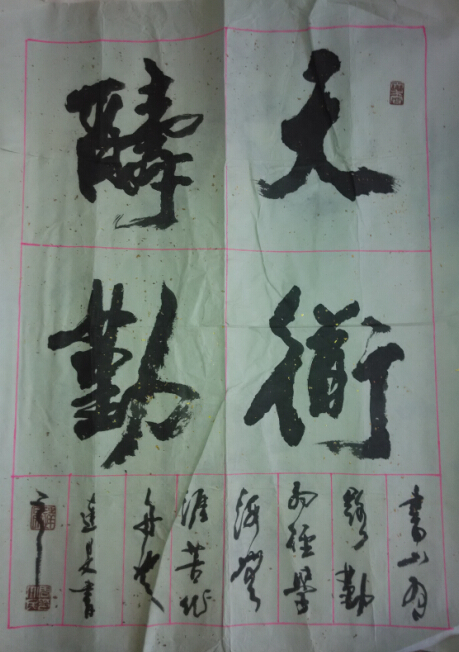 天衜
醻勤
書山有
路勤
為徑學
海無
涯苦作
舟
書